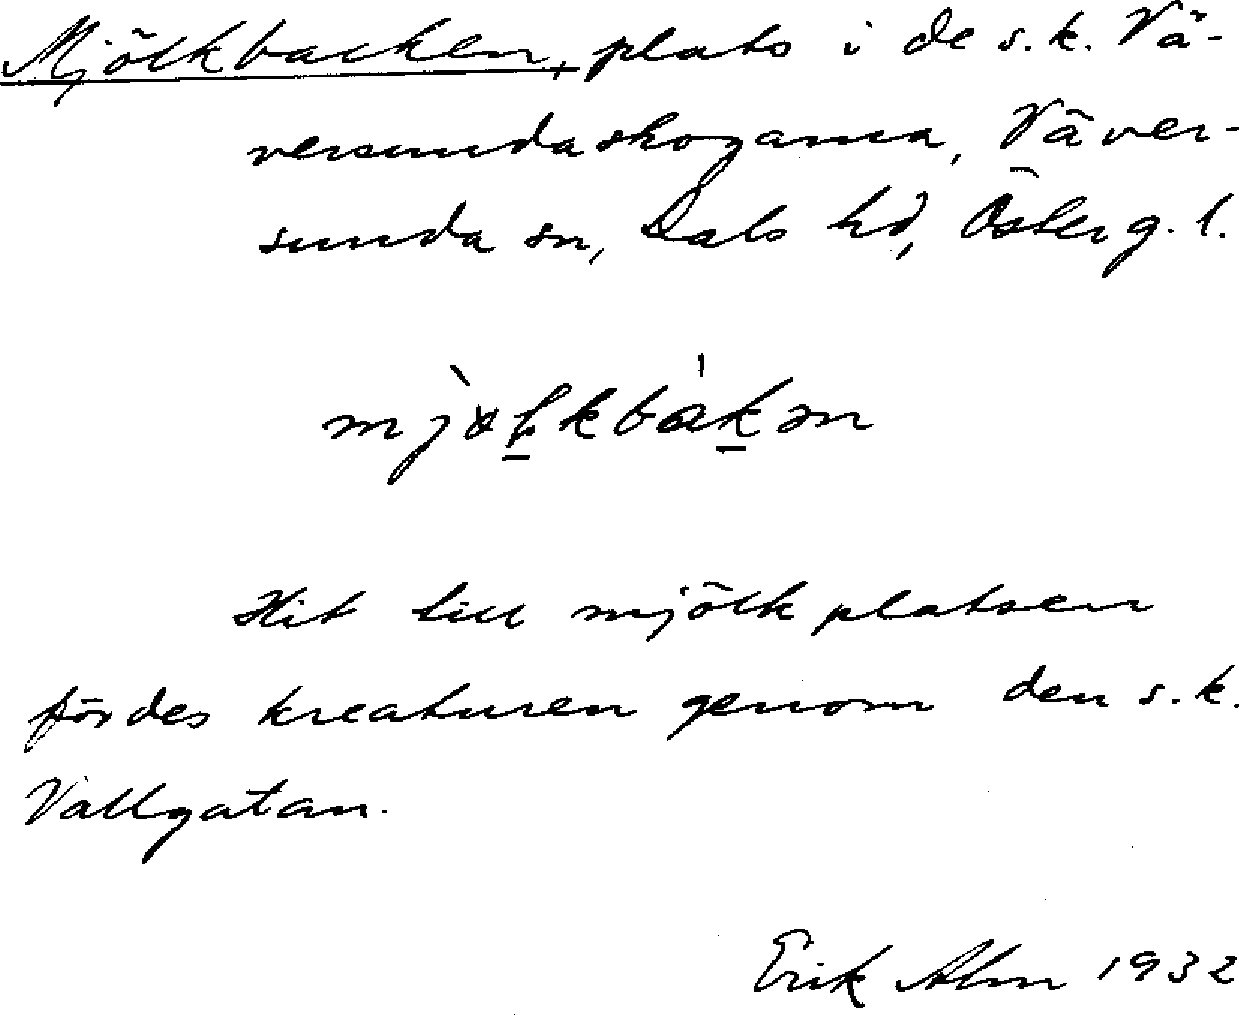 Mjölkbacken, plats i de s.k. Vä-
versundaskogarna, Väver-
sunda sn, Dals hd, Österg. l.
Hit till mjölkplatsen
fördes kreaturen genom den s.k.
Vallgatan.
Erik Alm 1932